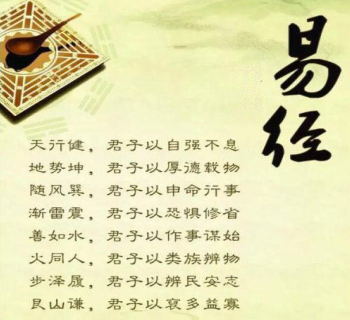 易经
天行健，君子以自强不息
地势坤，君子以厚德载物
随风巽，君子以申命行事
渐雷震，君子以恐惧修省
善如水，君子以作事谋始
火同人，君子以类族辨物
步泽履，君子以辨民安志
艮山谦，君子以裒多益寡